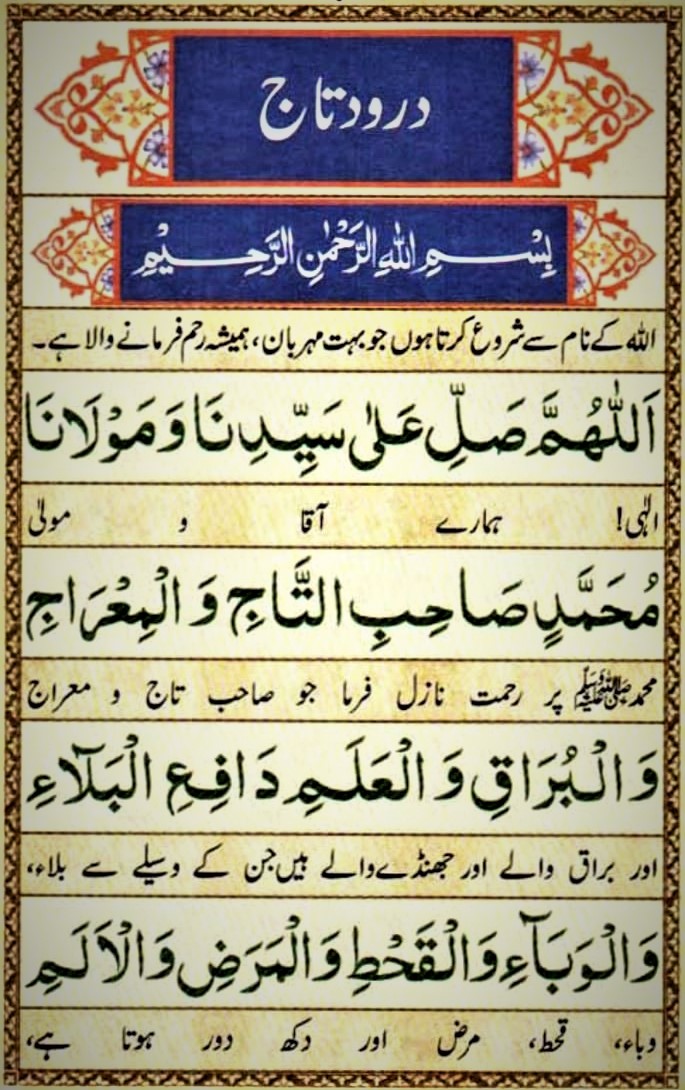 درود تاج
بِسْمِ اللهِ الرَّحْمٰنِ الرَّحِيْمِ
اللہ کے نام سے شروع کرتا ہوں جو بہت مہربان، ہمیشہ رحم فرمانے والا ہے۔
اَللّٰهُمَّ صَلِّ عَلٰى سَيِّدِنَا وَمَوْلَانَا
الٰہی! ہمارے آقا و مولیٰ
مُحَمَّدٍ صَاحِبِ التَّاجِ وَ الْمِعْرَاجِ
محمد ﷺ پر رحمت نازل فرما جو صاحب تاج و معراج
وَ الْبُرَاقِ وَ الْعَلَمِ دَافِعِ الْبَلَآءِ
اور براق والے اور جھنڈے والے ہیں جن کے وسیلے سے بلاء،
وَالْوَبَآءِ وَالْقَحْطِ وَالْمَرَضِ وَالْاَلَمِ
وباء، قحط، مرض اور دکھ دور ہوتا ہے،